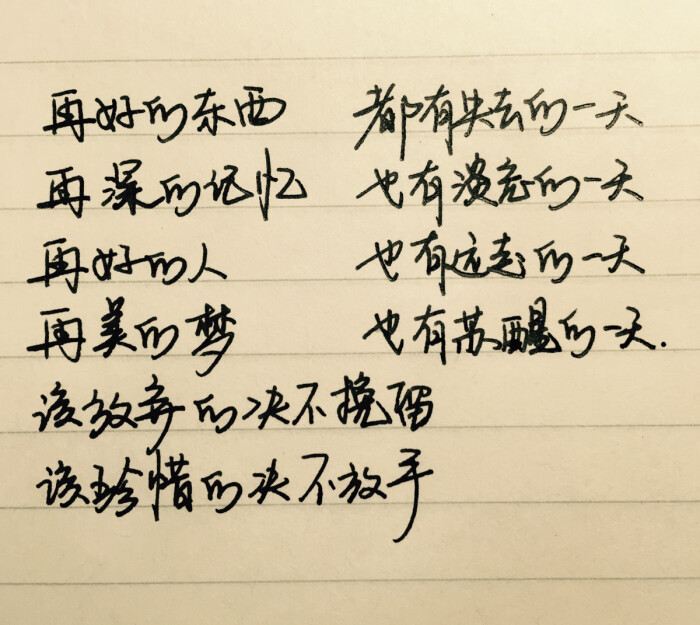 再好的东西 都有失去的一天
再深的记忆 也有淡忘的一天
再好的人 也有远走的一天
再美的梦 也有苏醒的一天.
该放弃的决不挽留
该珍惜的决不放手